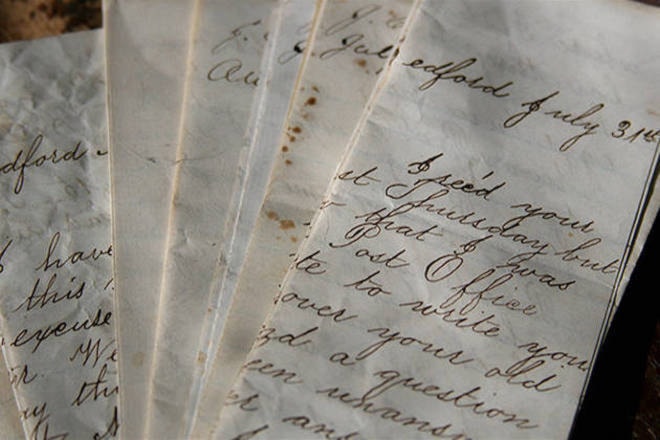 dford
have
this
excuse
r. We
ay th
J.
Au
J.
J. Jul
edford July 31st
I rec'd your
st Thursday but
that I was
Post Office
te to write you
over your old
nd a question
een unans
er an